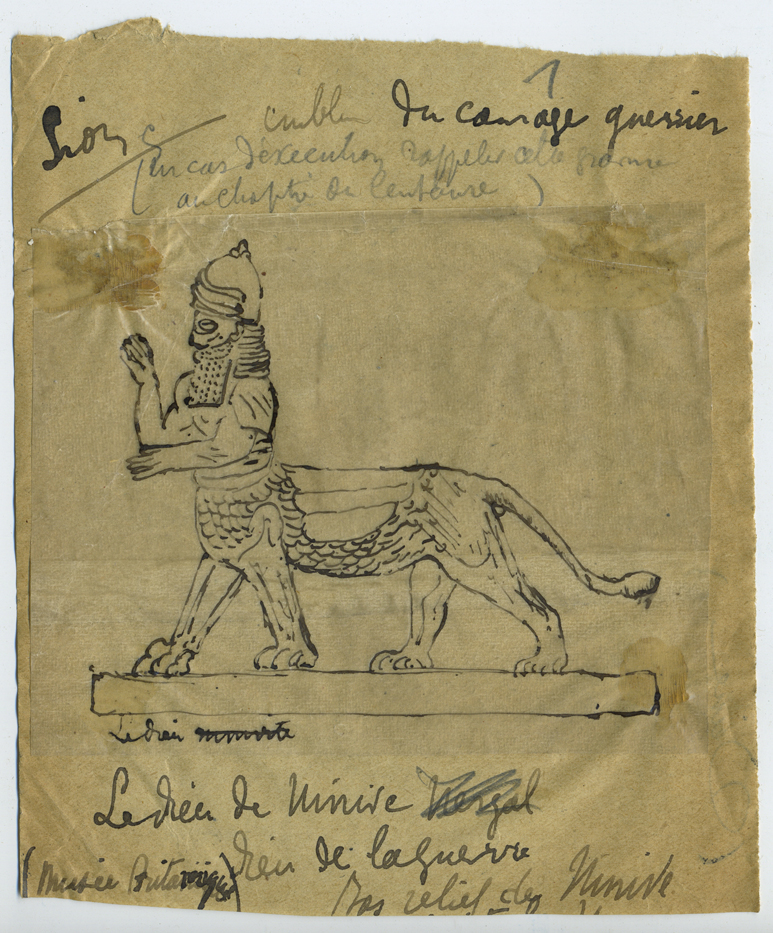 Lion emblem du courage guerrier
(en cas d'execution rappeler cette gravure
au chapitre du Centaure )
Le dieu ninivite
Le dieu de Ninive Nergal
dieu de la guerre
(Musée Britannique)
Bas relief de Ninive